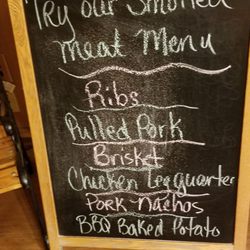 Try our Smoked
meat Menu
Ribs
Pulled Pork
Brisket
Chicken Leg quarter
Pork Nachos
BBQ Baked Potato